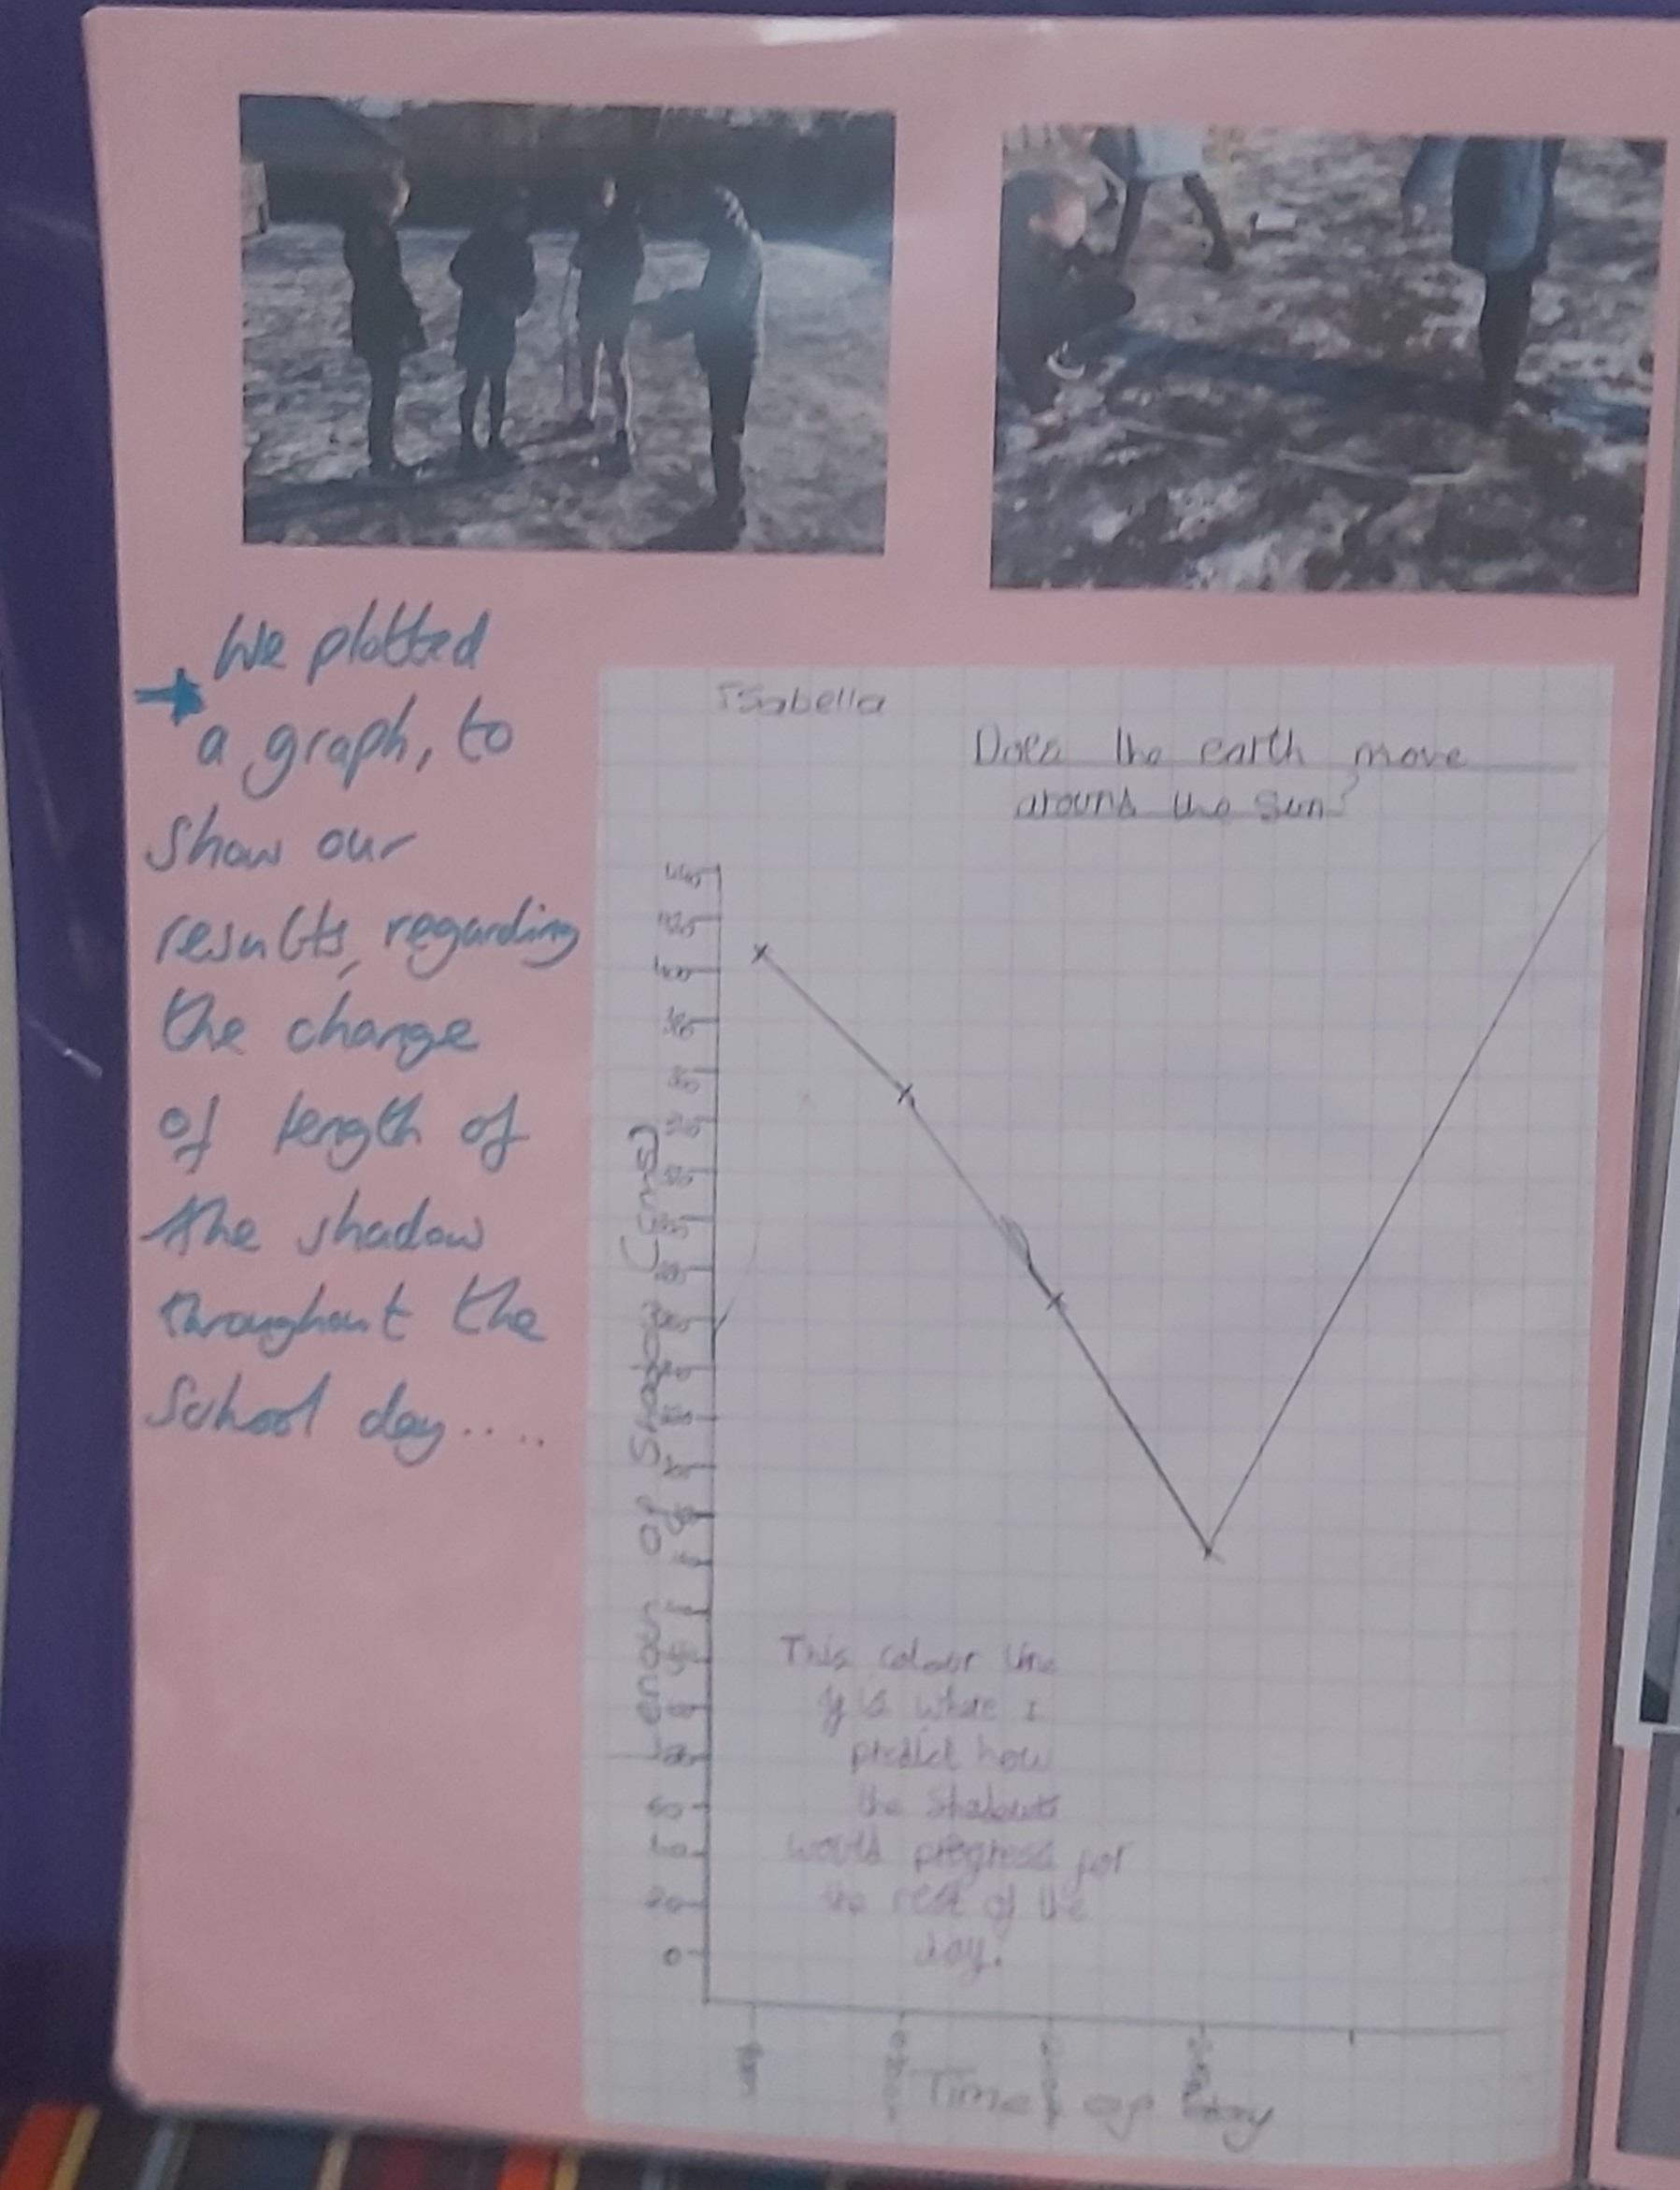 We plotted
a graph, to
show our
results, regarding
the change
of length of
the shadow
throughout the
School day....
Isabella
Does the earth move
around the Sun?
Length of Shadow (cms)
This colour line
is where I
predict how
the shadows
would progress for
the rest of the
day.
60
40
20
0
Time of Day